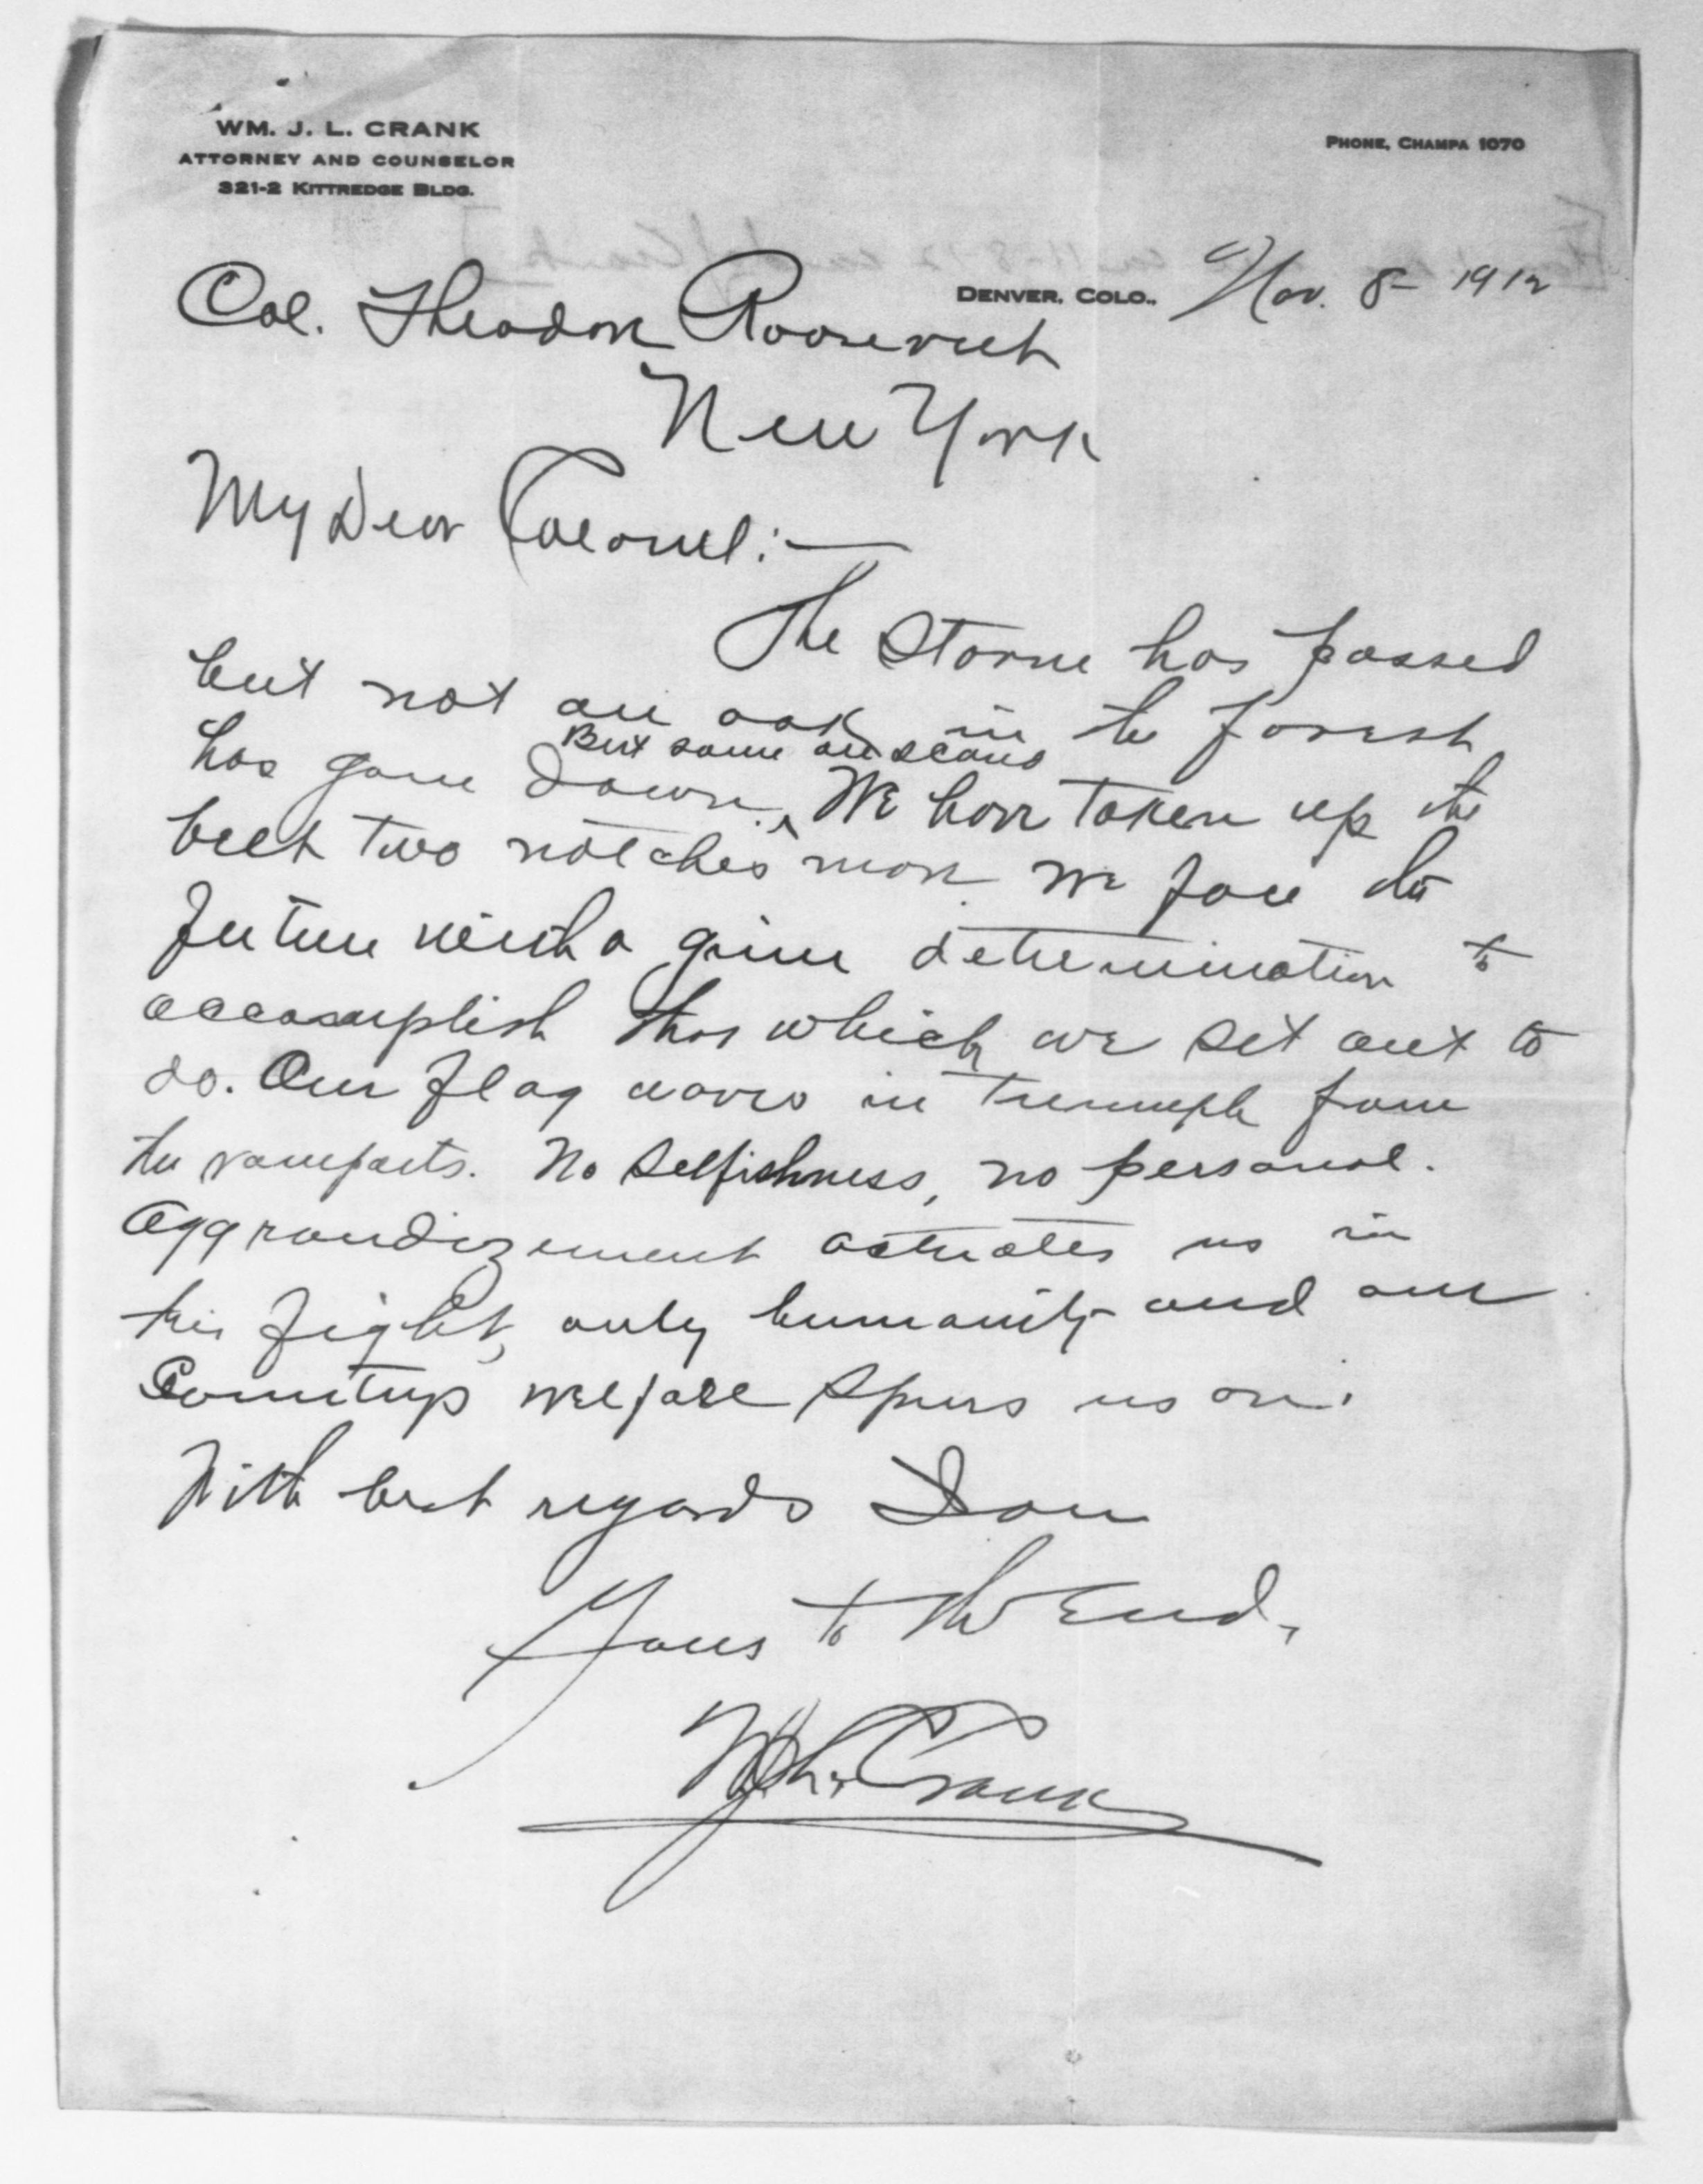 WM. J. L. CRANK
ATTORNEY AND COUNSELOR
321-2 KITTREDGE BLDG.
PHONE, CHAMPA 1070
DENVER, COLO., Nov. 8- 1912
Col. Theodore Roosevelt
New York
My Dear Colonel:—
The storm has passed
but not an oak in the forest
But some are scars
has gone down. ^ We have taken up the
belt two notches more. We face the
future with a grim determination to
accomplish that which we set out to
do. Our flag waves in triumph from
the ramparts. No selfishness, no personal.
aggrandizement actuates us in
this fight, only humanity and our
Countrys welfare spurs us on.
With best regards I am
Yours to the End,
WJL Crank